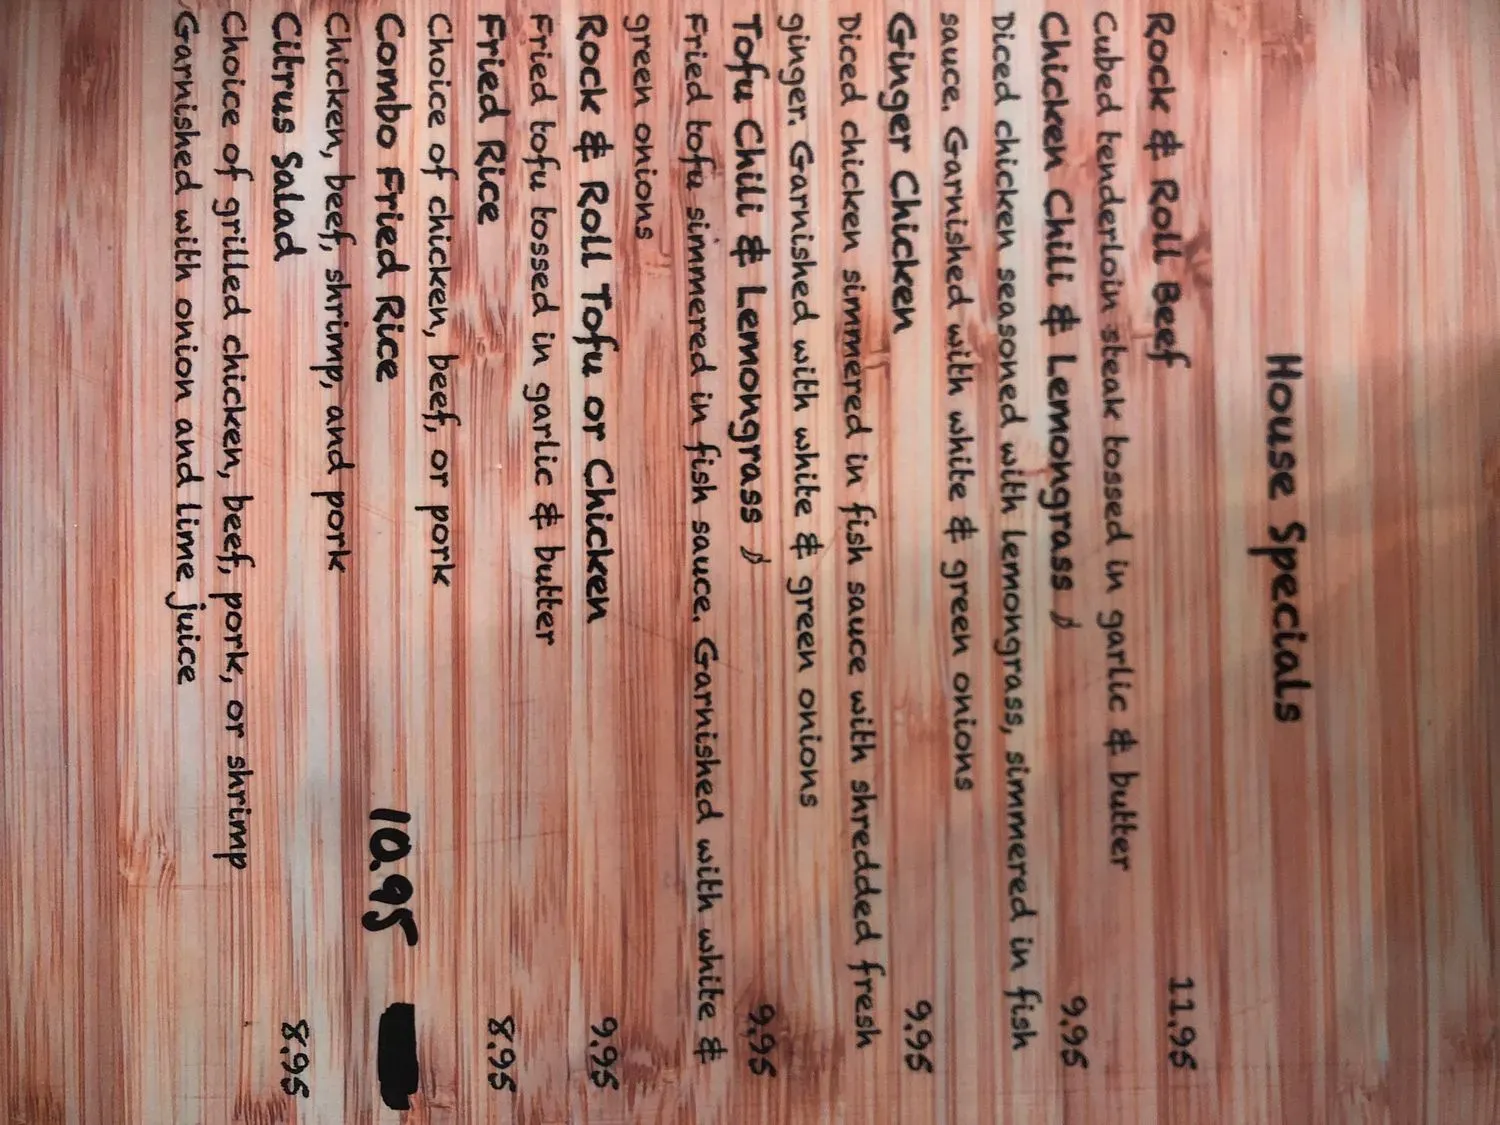 House Specials
Rock & Roll Beef 11.95
Cubed tenderloin steak tossed in garlic & butter
Chicken Chili & Lemongrass 9.95
Diced chicken seasoned with lemongrass, simmered in fish
sauce. Garnished with white & green onions
Ginger Chicken 9.95
Diced chicken simmered in fish sauce with shredded fresh
ginger. Garnished with white & green onions
Tofu Chili & Lemongrass 9.95
Fried tofu simmered in fish sauce. Garnished with white &
green onions
Rock & Roll Tofu or Chicken 9.95
Fried tofu tossed in garlic & butter
Fried Rice 8.95
Choice of chicken, beef, or pork
Combo Fried Rice 10.95
Chicken, beef, shrimp, and pork
Citrus Salad 8.95
Choice of grilled chicken, beef, pork, or shrimp
Garnished with onion and lime juice